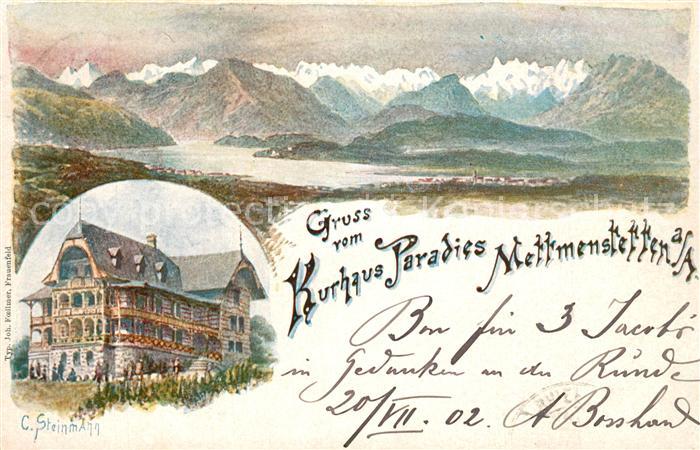 Gruss
vom
Kurhaus Paradies Mettmenstetten a/A.
Bon für 3 Jacobi
in Gedanken an die Runde
20/VII. 02. A
C. Steinmann
Typ. Joh. Frauenfeld